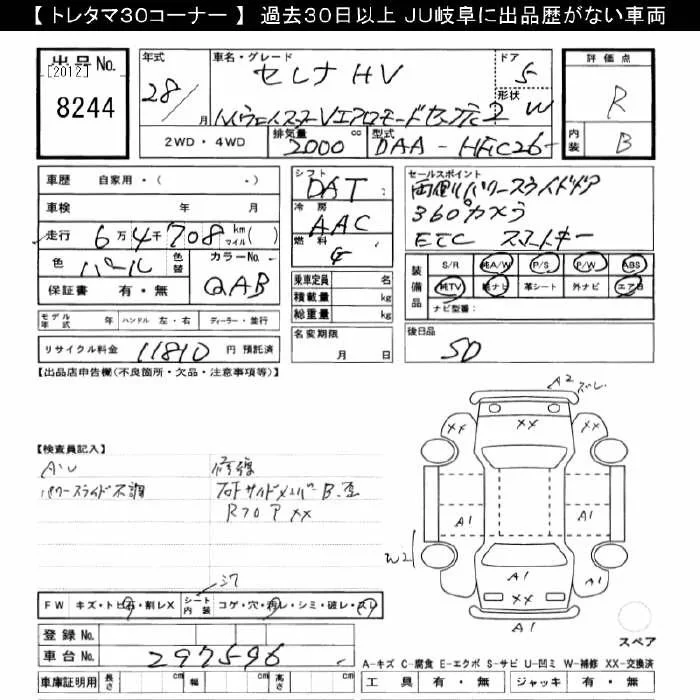 【 トレタマ30コーナー 】 過去30日以上 JU岐阜に出品歴がない車両
出品No.
[2012]
8244
年式
28/
月
車名・グレード
セレナ HV
ハイウェイスターVエアロモードセーフティ
ドア
5
形状
W
2WD ・ 4WD
排気量
2000
cc
型式
DAA - HFC26-
評価点
R
内装
B
車歴 自家用・( -)
車検 年 月
走行 6万4千708 km(マイル)
色 パール 色替
カラーNo.
QAB
保証書 有・無
シフト
DAT
冷房
AAC
燃料
G
乗車定員 名
積載量 kg
総重量 kg
セールスポイント
両側パワースライドドア
360°カメラ
ETC スマートキー
装備品
S/R 純A/W P/S P/W ABS
純TV 純ナビ 革シート 外ナビ エアB
ナビ型番:
モデル年式 年 ハンドル 左・右 ディーラー・並行
リサイクル料金 11810 円 預託済
名変期限
月 日
後日品
SD
【出品店申告欄(不良箇所・欠品・注意事項等)】
【検査員記入】
AU
パワースライド不調
修復
右Fサイドメンバー B.歪
Rフロア XX
A2 ズレ
XX
XX
XX
A1
A1
W2
A1
XX
A1
スペア
シワ
FW キズ・トビ石・割レX
シート内装
コゲ・穴・汚レ・シミ・破レ・スレ
登録No.
車台No. 297596
車庫証明用 長さ cm 幅 cm 高さ cm
A-キズ C-腐食 E-エクボ S-サビ U-凹ミ W-補修 XX-交換済
工具 有・無 ジャッキ 有・無